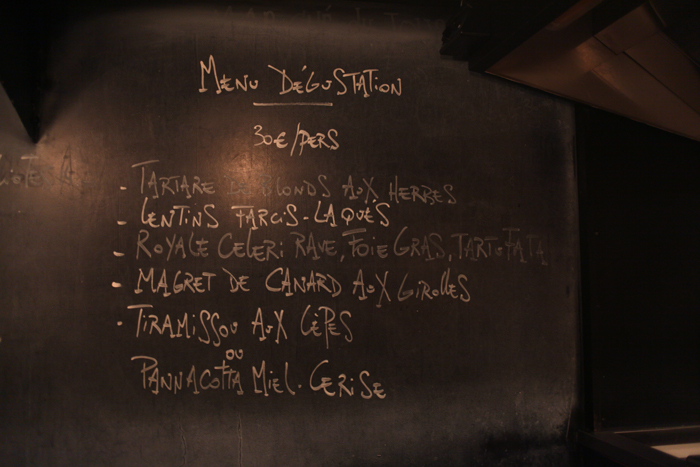 Menu Dégustation
30€/pers
- Tartare de blonds aux herbes
- Lentins farcis-laqués
- Royale celeri rave, foie gras, tartufata
- Magret de canard aux girolles
- Tiramissou aux cèpes
ou
Pannacotta miel. cerise